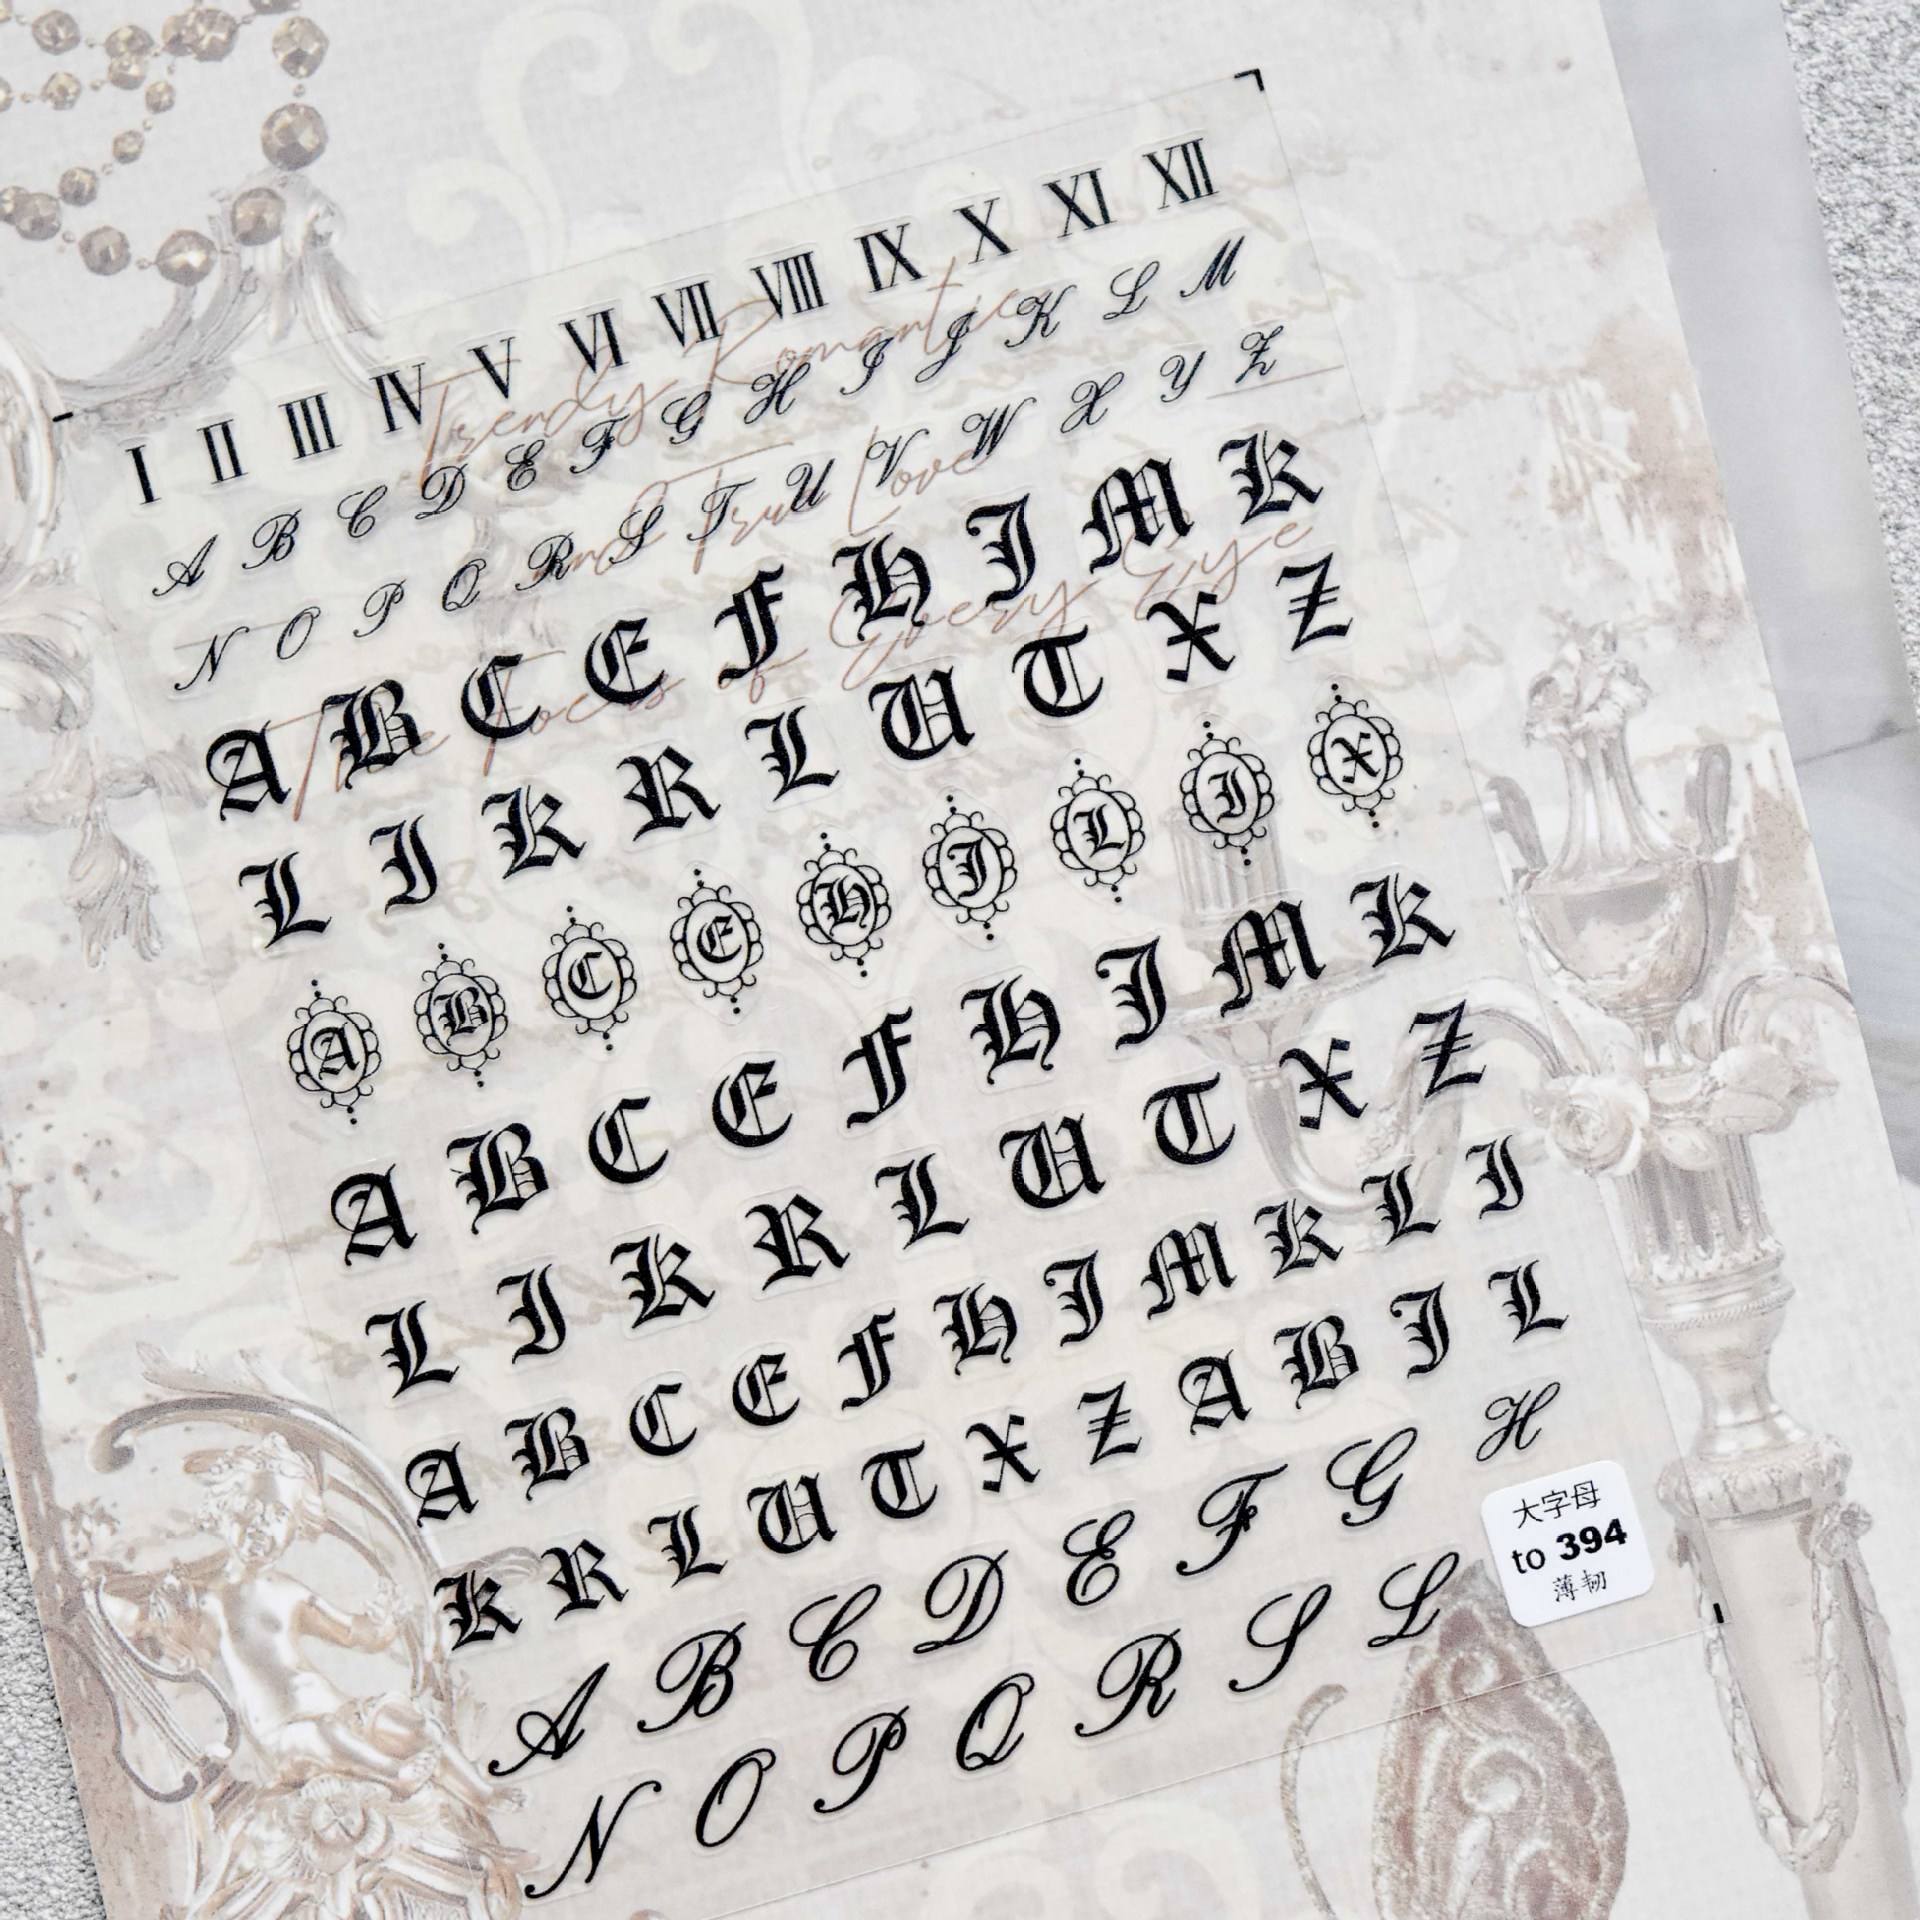 I II III IV V VI VII VIII IX X XI XII
A B C D E F G H I J K L M
N O P Q R S T U V W X Y Z
Trendy Romantic
and True Love
The Focus of Every Eye
A B C E F H I M K
L I K R L U T X Z
A B C E H I L I X
A B C E F H I M K
L I K R L U T X Z
A B C E F H I M K L I
K R L U T X Z A B I L
A B C D E F G H
N O P Q R S L
大字母
to 394
薄韧